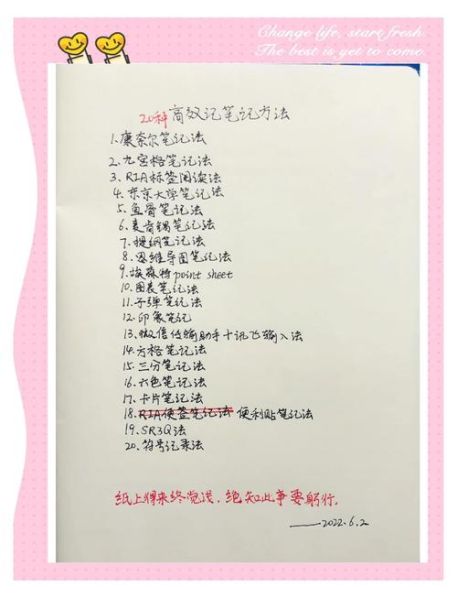 Change life, start fresh
The best is yet to come.
20种高效记笔记方法
1、康奈尔笔记法
2、九宫格笔记法
3、RIA标签阅读法
4、东京大学笔记法
5、鱼骨笔记法
6、麦肯锡笔记法
7、提纲笔记法
8、思维导图笔记法
9、埃森特point sheet
10、图表笔记法
11、子弹笔记法
12、印象笔记
13、微信传输助手十讯飞输入法
14、方格笔记法
15、三分笔记法
16、六色笔记法
17、卡片笔记法
18、RIA便签笔记法 便利贴笔记法
19、SR3Q法
20、符号记录法
纸上得来终觉浅，绝知此事要躬行。
——2022.6.2